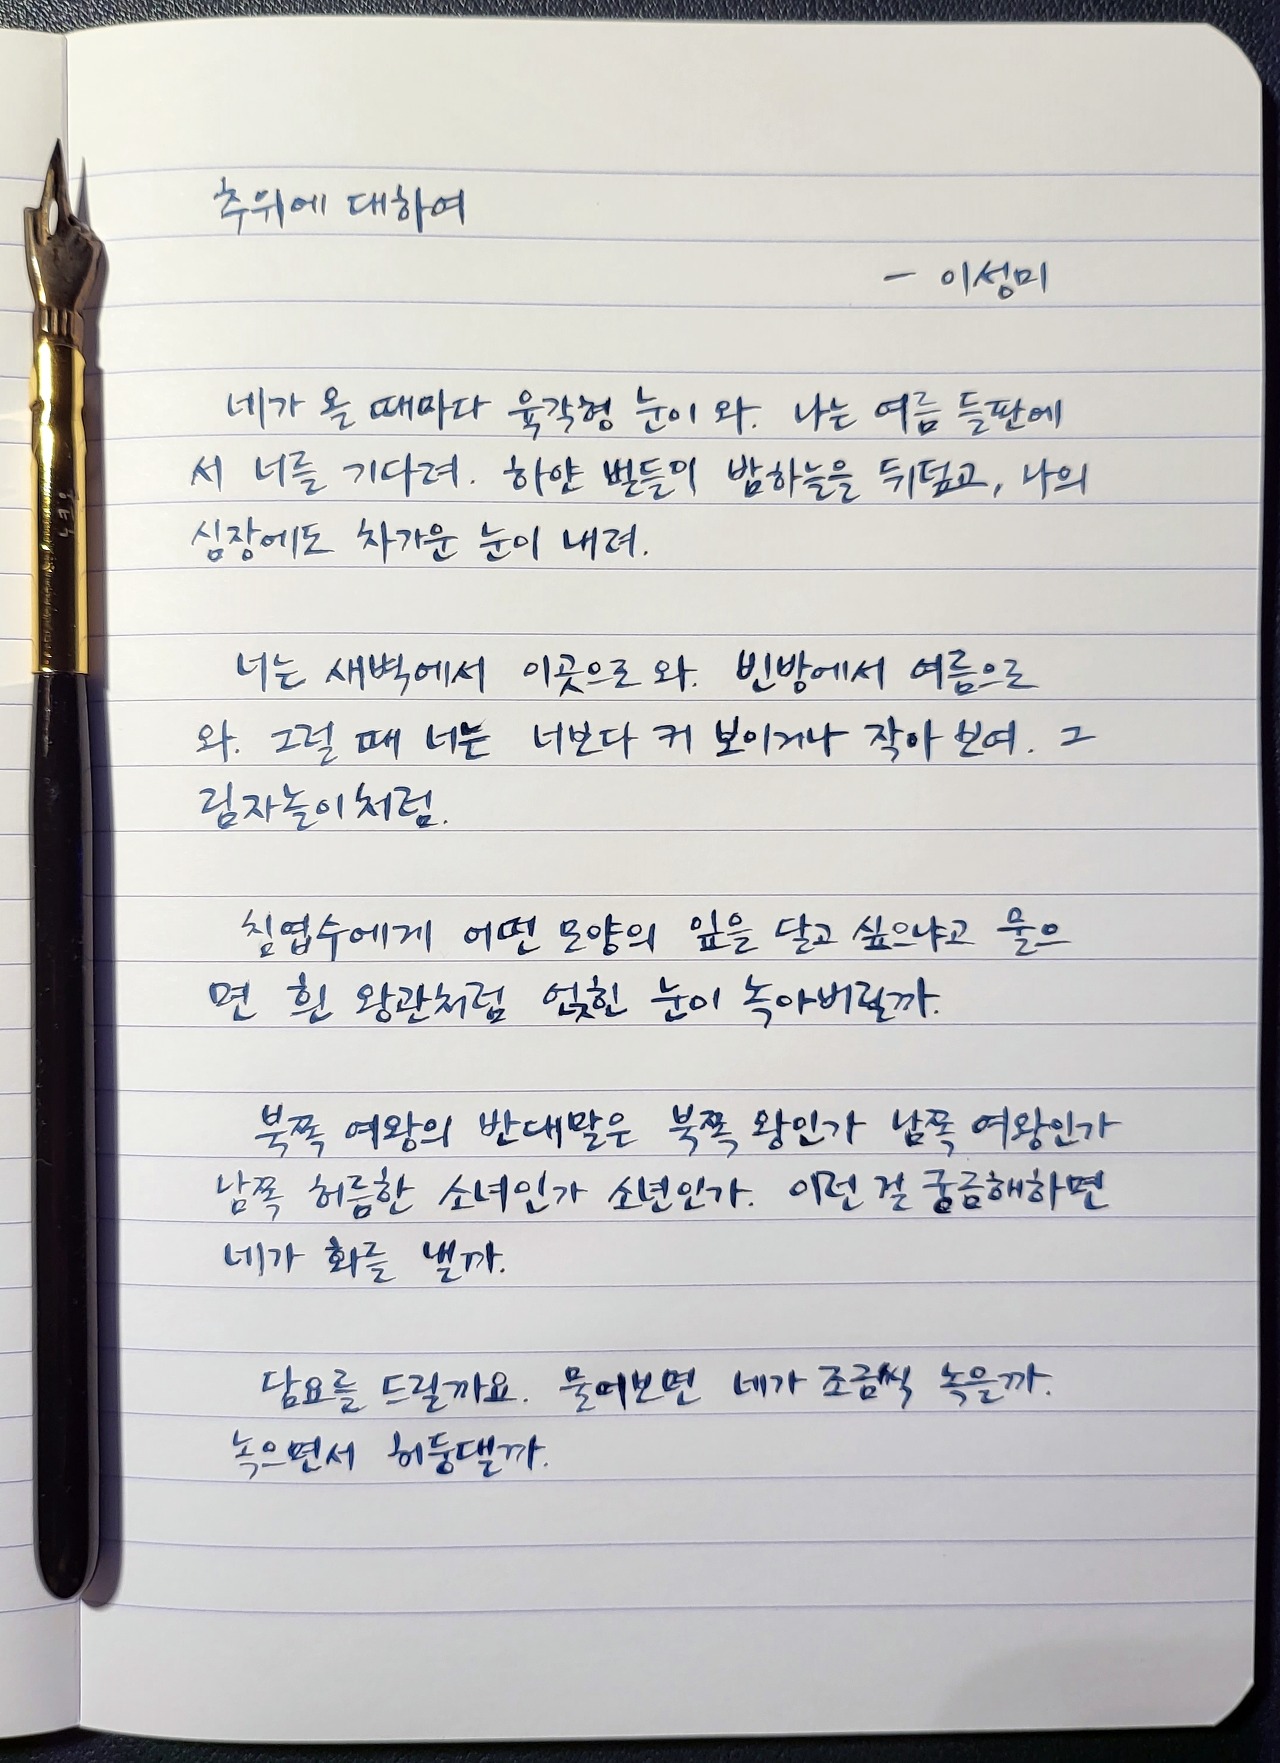 추위에 대하여
- 이성미
네가 올 때마다 육각형 눈이 와. 나는 여름 들판에
서 너를 기다려. 하얀 벌들이 밤하늘을 뒤덮고, 나의
심장에도 차가운 눈이 내려.
너는 새벽에서 이곳으로 와. 빈방에서 여름으로
와. 그럴 때 너는 너보다 커 보이거나 작아 보여. 그
림자놀이처럼.
침엽수에게 어떤 모양의 잎을 달고 싶으냐고 물으
면 흰 왕관처럼 얹힌 눈이 녹아버릴까.
북쪽 여왕의 반대말은 북쪽 왕인가 남쪽 여왕인가
남쪽 허름한 소녀인가 소년인가. 이런 걸 궁금해하면
네가 화를 낼까.
담요를 드릴까요. 물어보면 네가 조금씩 녹을까.
녹으면서 허둥댈까.